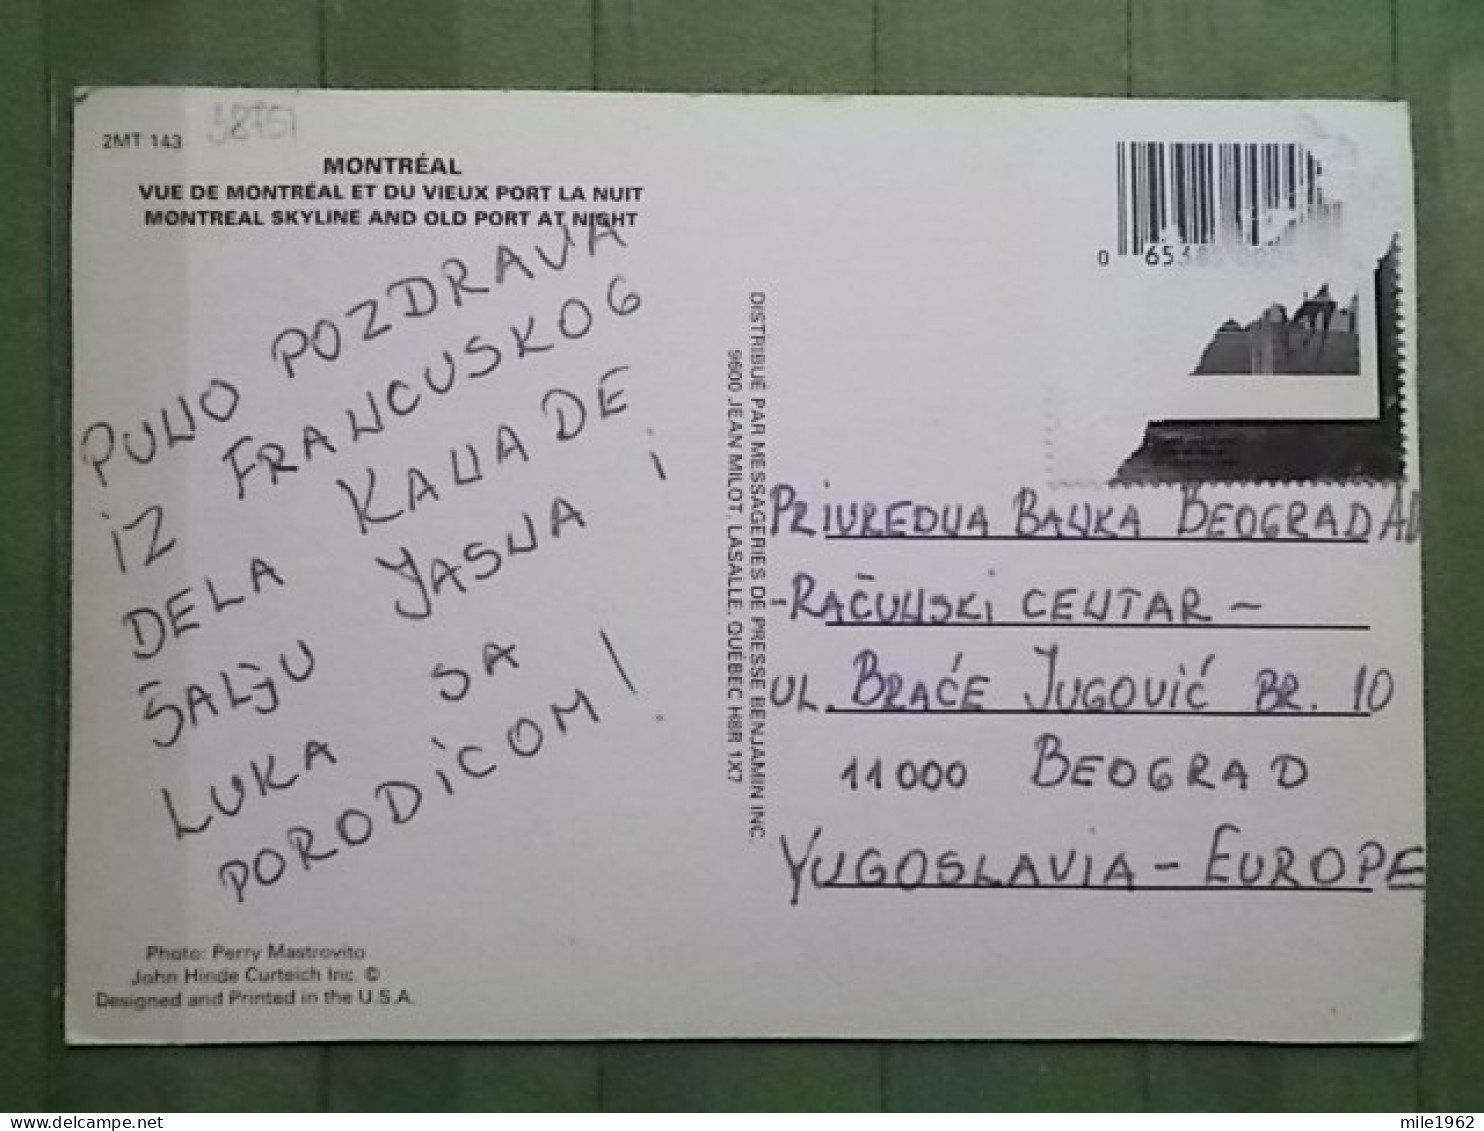 2MT 143
38751
MONTRÉAL
VUE DE MONTRÉAL ET DU VIEUX PORT LA NUIT
MONTREAL SKYLINE AND OLD PORT AT NIGHT
PUNO POZDRAVA
IZ FRANCUSKOG
DELA KANADE
ŠALJU JASNA i
LUKA SA
PORODICOM!
Photo: Perry Mastrovito
John Hinde Curteich Inc. ©
Designed and Printed in the U.S.A.
DISTRIBUÉ PAR MESSAGERIES DE PRESSE BENJAMIN INC.
9600 JEAN MILOT, LASALLE, QUÉBEC H8R 1X7
0 65385
PRIVREDNA BANKA BEOGRAD
-RAČUNSKI CENTAR-
UL. BRAĆE JUGOVIĆ BR. 10
11000 BEOGRAD
YUGOSLAVIA - EUROPE
delcampe.net
mile1962